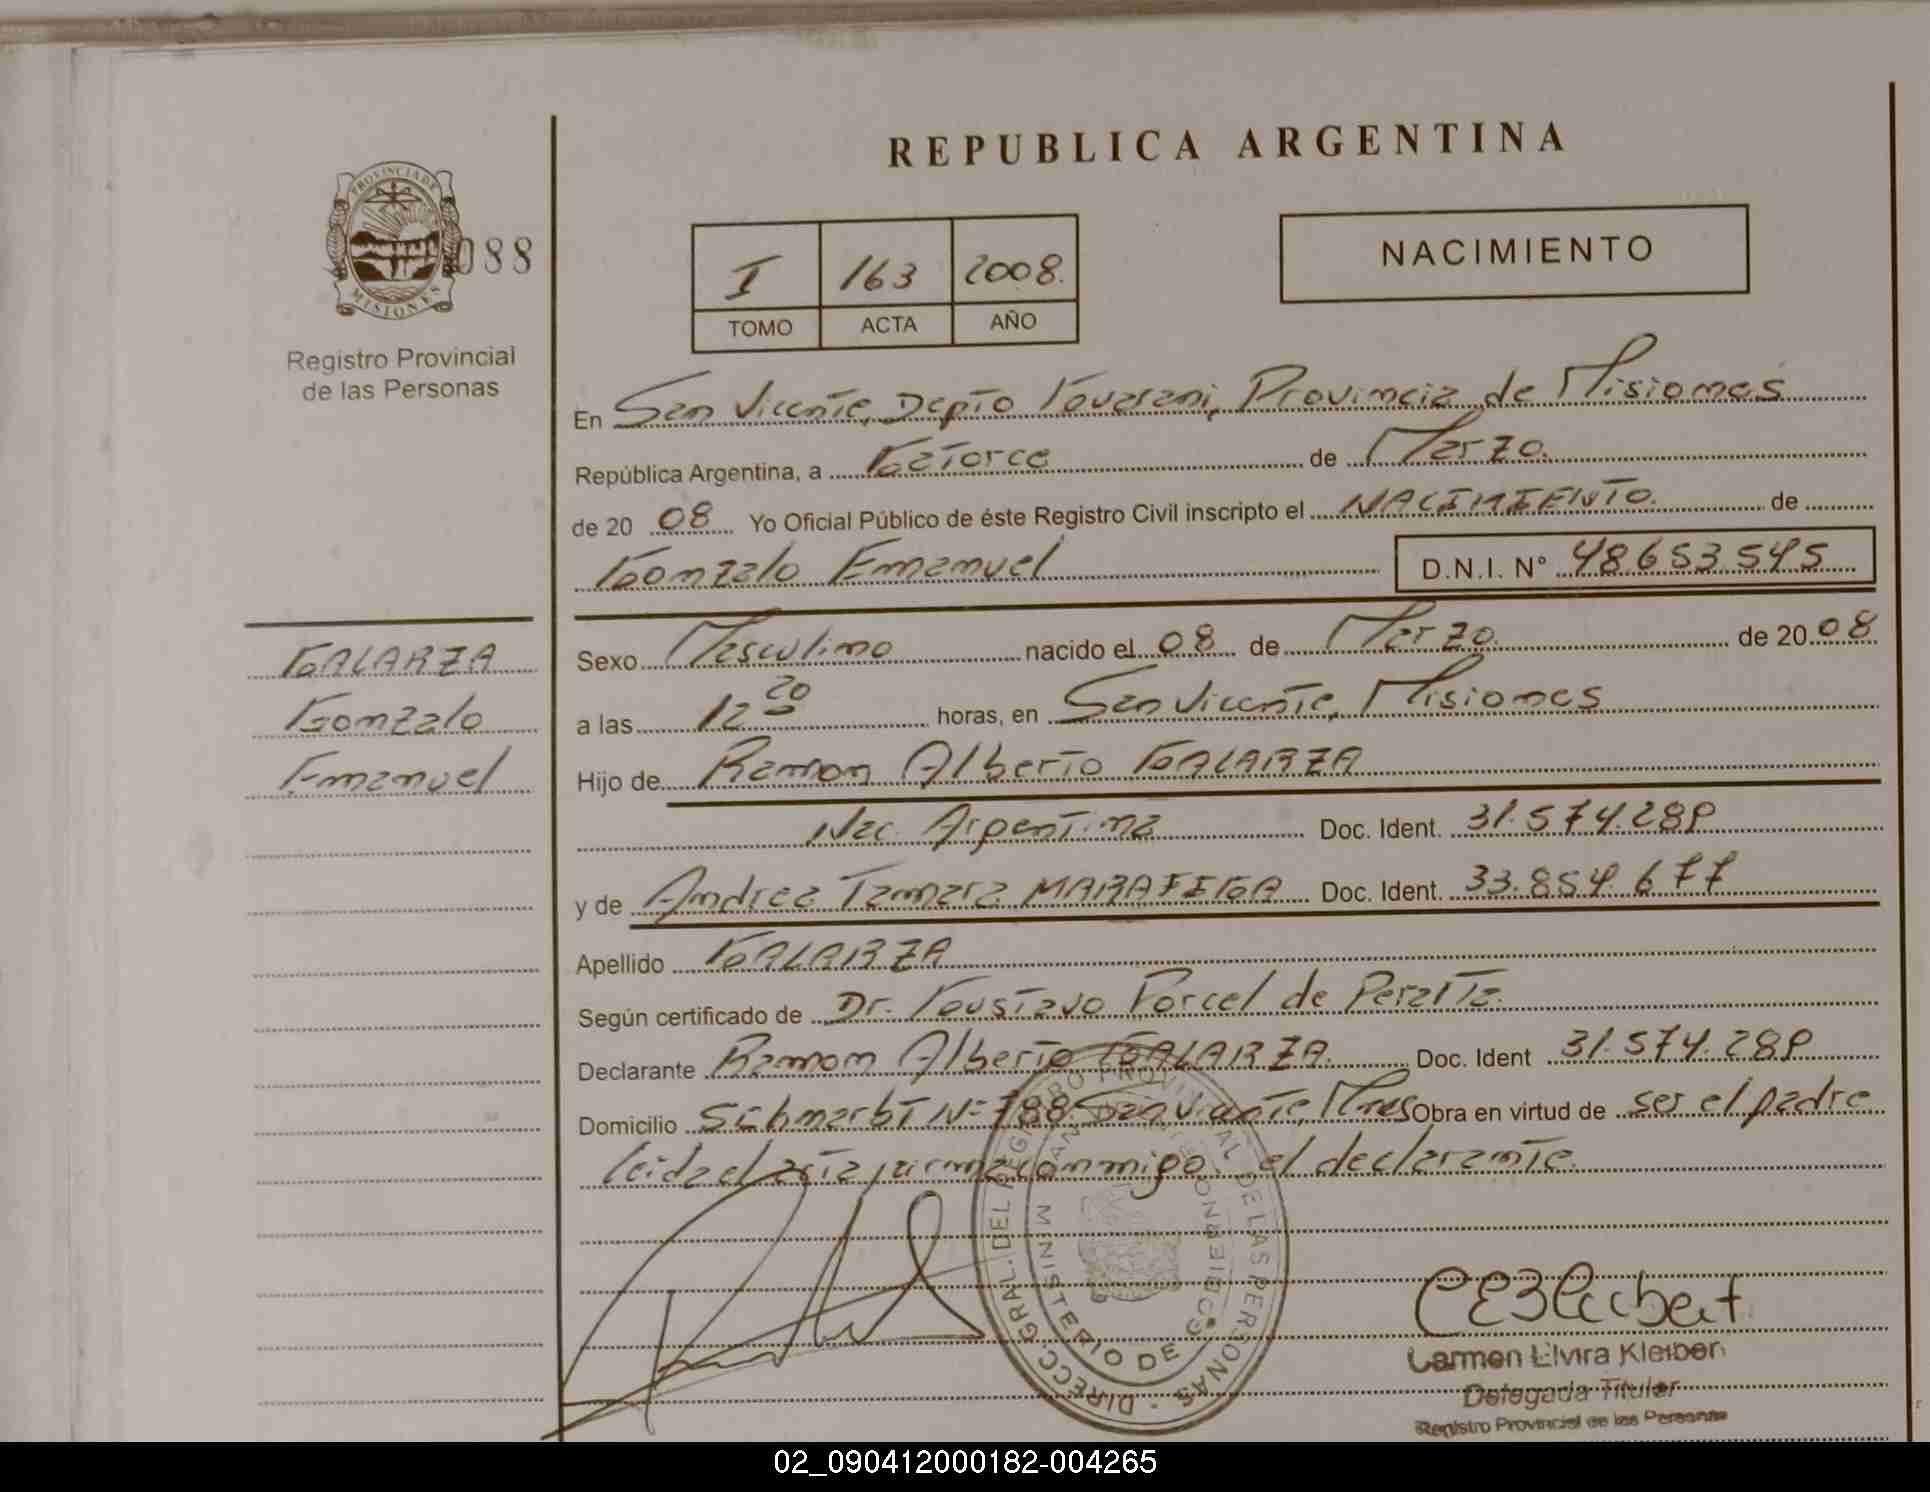 REPUBLICA ARGENTINA
PROVINCIA DE
MISIONES
088
Registro Provincial
de las Personas
I 163 2008.
TOMO ACTA AÑO
NACIMIENTO
En San Vicente, Depto Guarani, Provincia de Misiones
República Argentina, a Catorce de Marzo.
de 20 08 Yo Oficial Público de éste Registro Civil inscripto el NACIMIENTO. de
Gonzalo Emanuel D.N.I. N° 48.653.545
GALARZA
Gonzalo
Emanuel
Sexo Masculino nacido el 08 de Marzo de 20 08
a las 12 20 horas, en San Vicente, Misiones
Hijo de Ramon Alberto GALARZA
Nac. Argentina Doc. Ident. 31.574.289
y de Andrea Tamara MARAFIGA Doc. Ident. 33.854.677
Apellido GALARZA
Según certificado de Dr. Gustavo Porcel de Peralta.
Declarante Ramon Alberto GALARZA. Doc. Ident 31.574.289
Domicilio N= 788 San Vicente, Mnes Obra en virtud de ser el padre
leida el acta, firma conmigo el declarante.
DIRECC. GRAL. DEL REGISTRO PROVINCIAL DE LAS PERSONAS
MINISTERIO DE GOBIERNO
Carmen Elvira Kleiber
Delegada Titular
Registro Provincial de las Personas
02_090412000182-004265